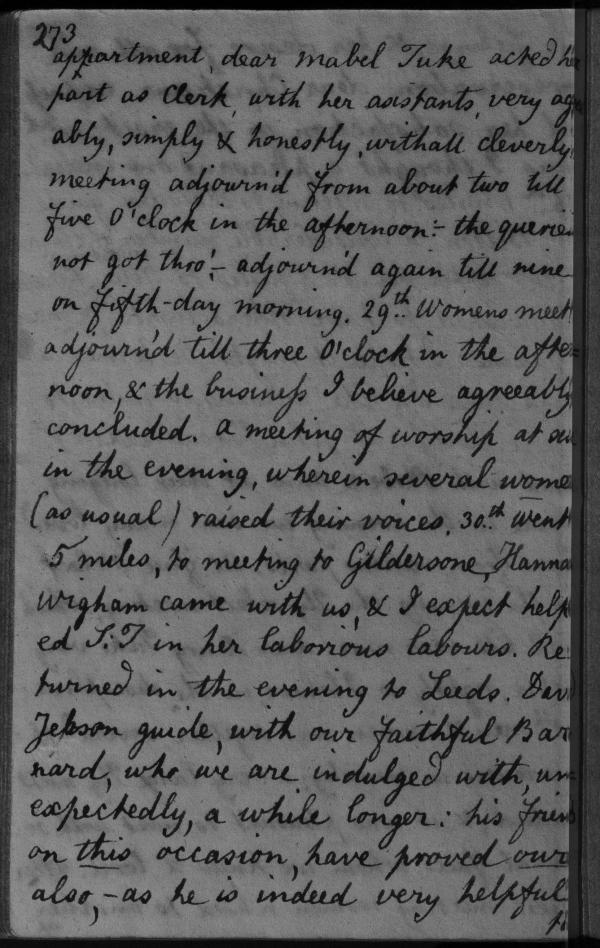 273
appartment, dear Mabel Tuke acted he
part as Clerk, with her asistants, very ag
ably, simply & honestly, withall cleverly,
meeting adjourn'd from about two till
five O'clock in the afternoon:- the querie
not got thro',- adjourn'd again till nine
on fifth-day morning. 29th.. Womens meet
adjourn'd till three O'clock in the after=
noon, & the business I believe agreeably
concluded. a meeting of worship at
in the evening, wherein several wome
(as usual) raised their voices. 30th.. Went
5 miles, to meeting to Gildersone, Hanna
Wigham came with us, & I expect help
ed S:T in her laborious labours. Re
turned in the evening to Leeds. Dav
Jebson guide, with our faithful Bar
nard, who we are indulged with, un=
expectedly, a while longer: his frien
on this occasion, have proved our
also,- as he is indeed very helpful